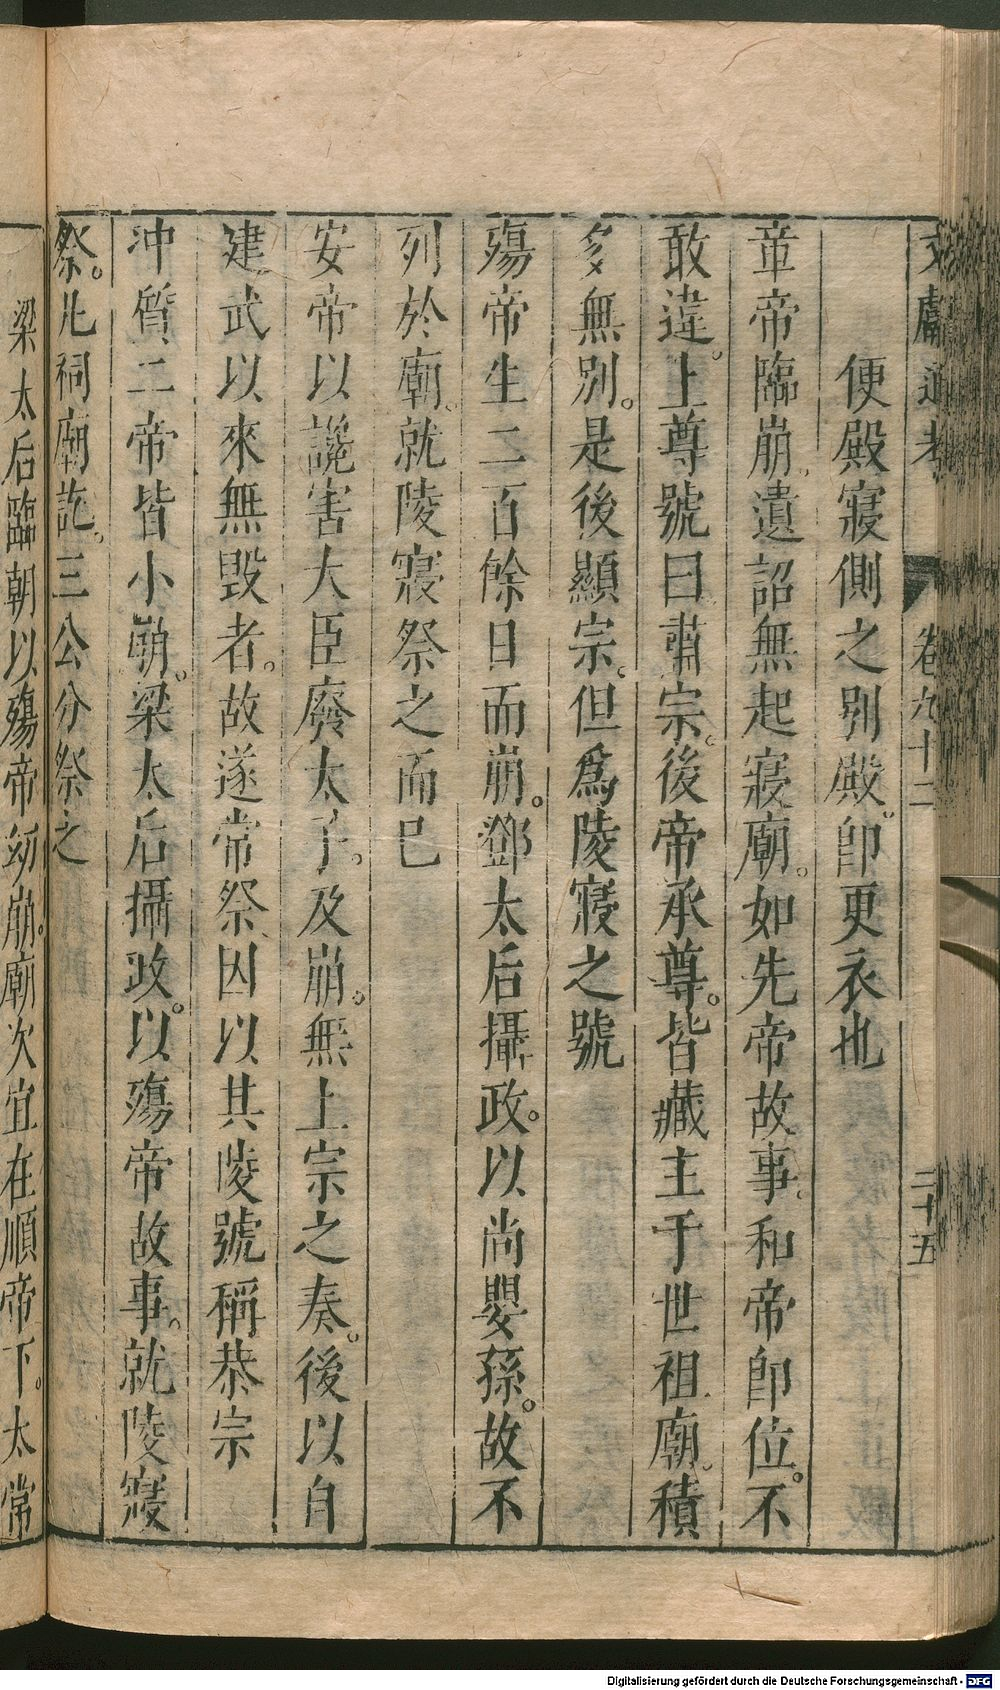 文獻通考 卷九十二 二十五
便殿寢側之別殿。卽更衣也
章帝臨崩。遺詔無起寢廟。如先帝故事。和帝卽位。不
敢違。上尊號曰肅宗。後帝承尊。皆藏主于世祖廟。積
多無別。是後顯宗。但爲陵寢之號
殤帝生二百餘日而崩。鄧太后攝政。以尚嬰孫。故不
列於廟。就陵寢祭之而巳
安帝以讒害大臣廢太子。及崩。無上宗之奏。後以自
建武以來無毀者。故遂常祭因以其陵號稱恭宗
沖質二帝皆小崩。梁太后攝政。以殤帝故事。就陵寢
祭。凡祠廟訖。三公分祭之
梁太后臨朝以殤帝幼崩。廟次宜在順帝下。太常
Digitalisierung gefördert durch die Deutsche Forschungsgemeinschaft - DFG